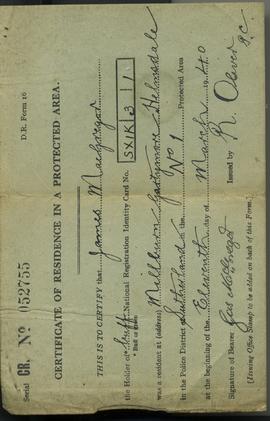 D.R. Form 16
Serial GR. No 052755
CERTIFICATE OF RESIDENCE IN A PROTECTED AREA.
THIS IS TO CERTIFY that James Macgregor
the Holder of Buff National Registration Identity Card No. SXIK 3 1
* Buff or green
was a resident at (address) Millburn Gartymore Helmsdale
in the Police District Sutherland in the No 1 Protected Area
at the beginning of the Eleventh day of March 1940
Issued by R. Oliver P.C.
Signature of Bearer Jas MacGregor
(Issuing Office Stamp to be added on back of this Form)